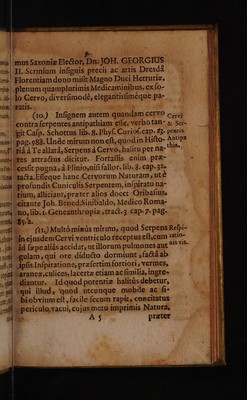 mus Saxoniæ Elector, Dn. JOH. GEORGIUS
II. Scrinium insignis precii ac artis Dresdâ
Florentiam dono misit Magno Duci Hetruriæ,
plenum quamplurimis Medicaminibus, ex so-
lo Cervo, diversimodè, elegantissimèque pa-
ratis.
(10.) Insignem autem quandam cervo
contra serpentes antipathiam esse, verbo tan-
git Casp. Schottus lib. 8. Phys. Curios. cap. 63.
pag. 988. Unde mirum non est, quod in Histo-
riâ â Te allatâ, Serpens â Cervo, halitu per na-
res attractus dicitur. Fortassis enim præ-
cessit pugna, â Plinio, nisi fallor, lib. 8. cap. 32.
tacta. Esseque hanc Cervorum Naturam, ut è
profundis Cuniculis Serpentem, inspiratu na-
rium, alliciant, præter alios docet Oribasius,
citante Joh. Bened. Sinibaldo, Medico Roma-
no, lib. 1. Geneanthropiæ, tract. 3. cap. 7. pag.
Cervi
& Ser-
pentis
Antipa
thia.
(11.) Multò minùs mirum, quod Serpens
in ejusdem Cervi ventriculo receptus est, cum
id sæpe aliàs accidat, ut illorum pulmones aut
gulam, qui ore diducto dormiunt, factâ ab
ipsis Inspiratione, præsertim fortiori, vermes,
araneæ, culices, lacertæ etiam ac similia, ingre-
diantur. Id quod potentiæ halitûs debetur,
qui illud, quod utcunque mobile ac si-
bi obvium est, facile secum rapit, concitatus
periculo, vacui, cujus metu imprimis Natura,
Respi-
ratio-
nis vis.
A 5
præter